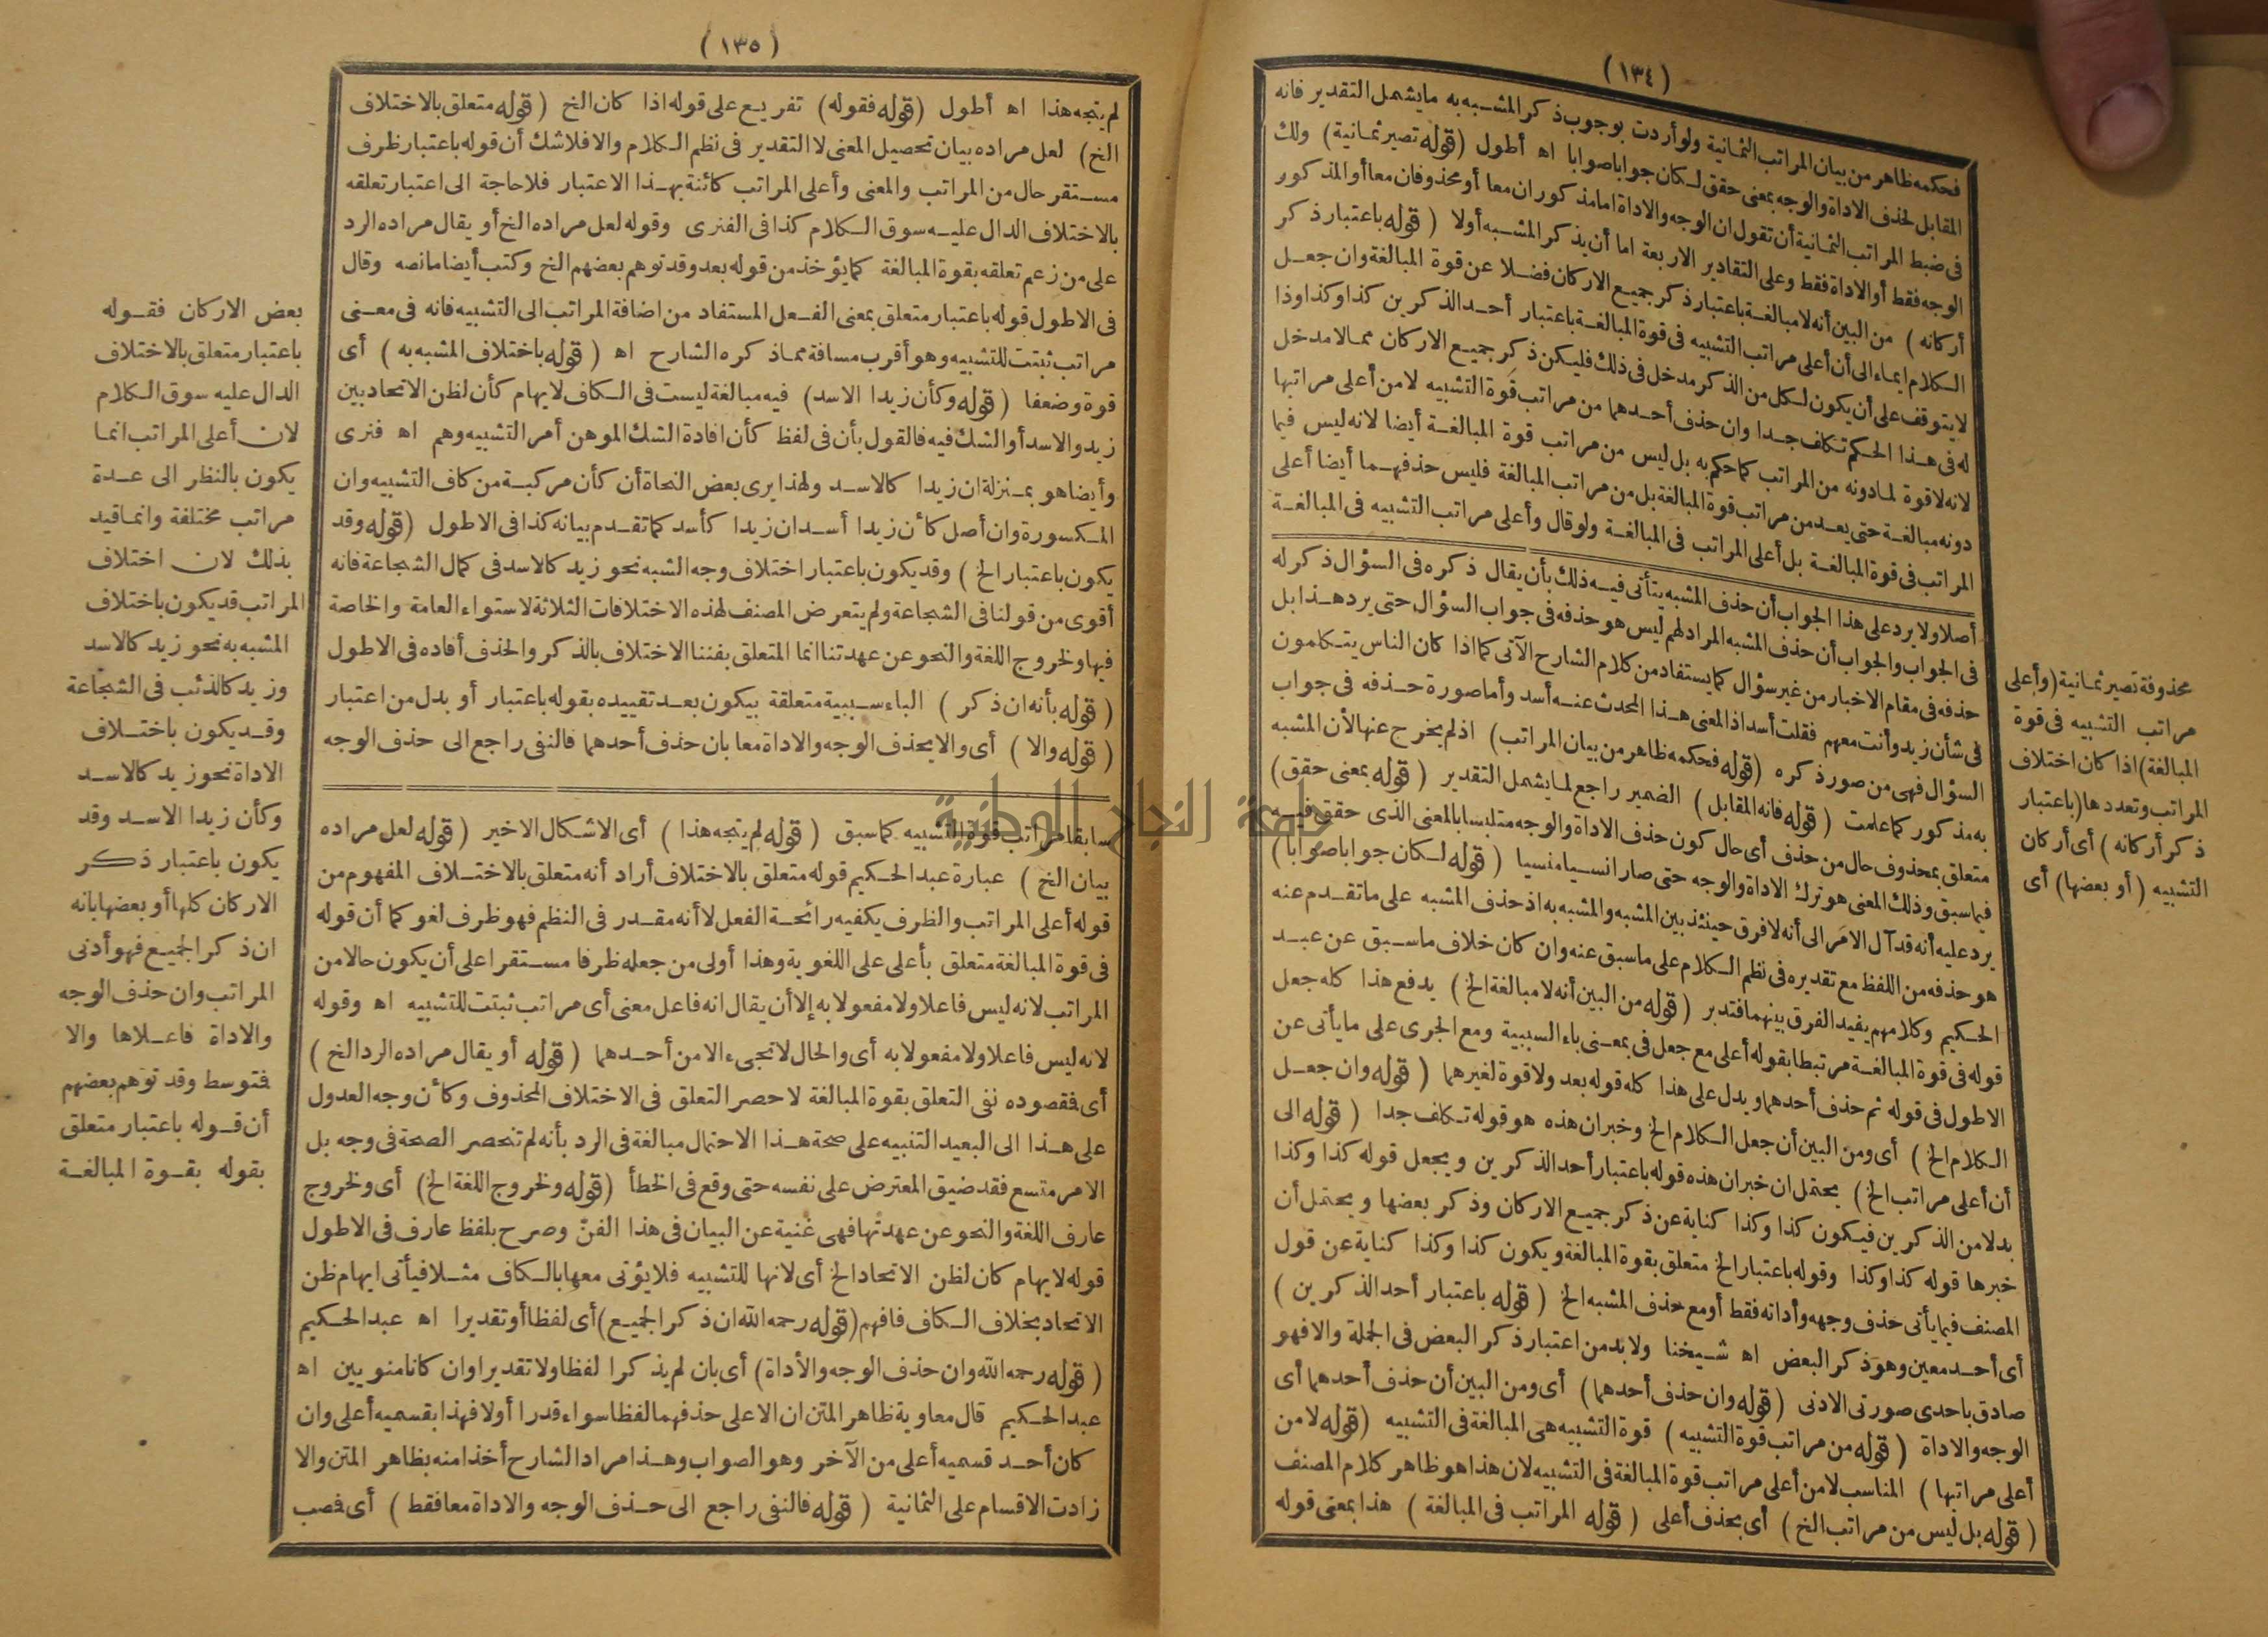 (١٣٤)
فحكمه ظاهر من بيان المراتب الثمانية ولو أردت بوجوب ذكر المشبه به ما يشمل التقدير فانه
المقابل لحذف الاداة والوجه بمعنى حقق لكان جوابا صوابا اه أطول (قوله تصير ثمانية) ولك
فى ضبط المراتب الثمانية أن تقول ان الوجه والاداة اما مذكوران معا أو محذوفان معا أو المذكور
الوجه فقط أو الاداة فقط وعلى التقادير الاربعة اما أن يذكر المشبه أولا (قوله باعتبار ذكر
أركانه) من البين أنه لا مبالغة باعتبار ذكر جميع الاركان فضلا عن قوة المبالغة وان جعل
الكلام ايماء الى أن أعلى مراتب التشبيه فى قوة المبالغة باعتبار أحد الذكرين كذا وكذا وذا
لا يتوقف على أن يكون لكل من الذكر مدخل فى ذلك فليكن ذكر جميع الاركان مما لا مدخل
له فى هذا الحكم تكلف جدا وان حذف أحدهما من مراتب قوة التشبيه لا من أعلى مراتبها
لانه لا قوة لما دونه من المراتب كما حكم به بل ليس من مراتب قوة المبالغة أيضا لانه ليس فيما
دونه مبالغة حتى يعد من مراتب قوة المبالغة بل من مراتب المبالغة فليس حذفهما أيضا أعلى
المراتب فى قوة المبالغة بل أعلى المراتب فى المبالغة ولو قال وأعلى مراتب التشبيه فى المبالغة
أصلا ولا يرد على هذا الجواب أن حذف المشبه يتأتى فيه ذلك بأن يقال ذكره فى السؤال ذكر له
فى الجواب والجواب أن حذف المشبه المراد لهم ليس هو حذفه فى جواب السؤال حتى يرد هذا بل
حذفه فى مقام الاخبار من غير سؤال كما يستفاد من كلام الشارح الآتى كما اذا كان الناس يتكلمون
فى شأن زيد وأنت معهم فقلت أسد اذ المعنى هذا المحدث عنه أسد وأما صورة حذفه فى جواب
السؤال فهى من صور ذكره (قوله فحكمه ظاهر من بيان المراتب) اذ لم يخرج عنها لأن المشبه
به مذكور كما علمت (قوله فانه المقابل) الضمير راجع لما يشمل التقدير (قوله بمعنى حقق)
متعلق بمحذوف حال من حذف أى حال كون حذف الاداة والوجه متلبسا بالمعنى الذى حقق فيه
فيما سبق وذلك المعنى هو ترك الاداة والوجه حتى صارا نسيا منسيا (قوله لكان جوابا صوابا)
يرد عليه أنه قد آل الامر الى أنه لا فرق حينئذ بين المشبه والمشبه به اذ حذف المشبه على ما تقدم عنه
هو حذفه من اللفظ مع تقديره فى نظم الكلام على ما سبق عنه وان كان خلاف ما سبق عن عبد
الحكيم وكلامهم يفيد الفرق بينهما فتدبر (قوله من البين أنه لا مبالغة الخ) يدفع هذا كله جعل
قوله فى قوة المبالغة مرتبطا بقوله أعلى مع جعل فى بمعنى باء السببية ومع الجرى على ما يأتى عن
الاطول فى قوله ثم حذف أحدهما ويدل على هذا كله قوله بعد ولا قوة لغيرهما (قوله وان جعل
الكلام الخ) أى ومن البين أن جعل الكلام الخ وخبر ان هذه هو قوله تكلف جدا (قوله الى
أن أعلى مراتب الخ) يحتمل ان خبر ان هذه قوله باعتبار أحد الذكرين ويجعل قوله كذا وكذا
بدلا من الذكرين فيكون كذا وكذا كناية عن ذكر جميع الاركان وذكر بعضها ويحتمل أن
خبرها قوله كذا وكذا وقوله باعتبار الخ متعلق بقوة المبالغة ويكون كذا وكذا كناية عن قول
المصنف فيما يأتى حذف وجهه وأداته فقط أو مع حذف المشبه الخ (قوله باعتبار أحد الذكرين)
أى أحد معين وهو ذكر البعض اه شيخنا ولا بد من اعتبار ذكر البعض فى الجملة والا فهو
صادق باحدى صورتى الادنى (قوله وان حذف أحدهما) أى ومن البين أن حذف أحدهما أى
الوجه والاداة (قوله من مراتب قوة التشبيه) قوة التشبيه هى المبالغة فى التشبيه (قوله لا من
أعلى مراتبها) المناسب لا من أعلى مراتب قوة المبالغة فى التشبيه لان هذا هو ظاهر كلام المصنف
(قوله بل ليس من مراتب الخ) أى بحذف أعلى (قوله المراتب فى المبالغة) هذا بمعنى قوله
محذوفة تصير ثمانية (وأعلى
مراتب التشبيه فى قوة
المبالغة) اذا كان اختلاف
المراتب وتعددها (باعتبار
ذكر أركانه) أى أركان
التشبيه (أو بعضها) أى
(١٣٥)
لم يتجه هذا اه أطول (قوله فقوله) تفريع على قوله اذا كان الخ (قوله متعلق بالاختلاف
الخ) لعل مراده بيان تحصيل المعنى لا التقدير فى نظم الكلام والا فلا شك أن قوله باعتبار ظرف
مستقر حال من المراتب والمعنى وأعلى المراتب كائنة بهذا الاعتبار فلا حاجة الى اعتبار تعلقه
بالاختلاف الدال عليه سوق الكلام كذا فى الفنرى وقوله لعل مراده الخ أو يقال مراده الرد
على من زعم تعلقه بقوة المبالغة كما يؤخذ من قوله بعد وقد توهم بعضهم الخ وكتب أيضا ما نصه وقال
فى الاطول قوله باعتبار متعلق بمعنى الفعل المستفاد من اضافة المراتب الى التشبيه فانه فى معنى
مراتب ثبتت للتشبيه وهو أقرب مسافة مما ذكره الشارح اه (قوله باختلاف المشبه به) أى
قوة وضعفا (قوله وكأن زيدا الاسد) فيه مبالغة ليست فى الكاف لايهام كأن لظن الاتحاد بين
زيد والاسد أو الشك فيه فالقول بأن فى لفظ كأن افادة الشك الموهن أمر التشبيه وهم اه فنرى
وأيضا هو بمنزلة ان زيدا كالاسد ولهذا يرى بعض النحاة أن كأن مركبة من كاف التشبيه وان
المكسورة وان أصل كأن زيدا أسد ان زيدا كأسد كما تقدم بيانه كذا فى الاطول (قوله وقد
يكون باعتبار الخ) وقد يكون باعتبار اختلاف وجه الشبه نحو زيد كالاسد فى كمال الشجاعة فانه
أقوى من قولنا فى الشجاعة ولم يتعرض المصنف لهذه الاختلافات الثلاثة لاستواء العامة والخاصة
فيها ولخروج اللغة والنحو عن عهدتنا انما المتعلق بفننا الاختلاف بالذكر والحذف أفاده فى الاطول
(قوله بأنه ان ذكر) الباء سببية متعلقة بيكون بعد تقييده بقوله باعتبار أو بدل من اعتبار
(قوله والا) أى والا يحذف الوجه والاداة معا بان حذف أحدهما فالنفى راجع الى حذف الوجه
سابقا مراتب قوة التشبيه كما سبق (قوله لم يتجه هذا) أى الاشكال الاخير (قوله لعل مراده
بيان الخ) عبارة عبد الحكيم قوله متعلق بالاختلاف أراد أنه متعلق بالاختلاف المفهوم من
قوله أعلى المراتب والظرف يكفيه رائحة الفعل لا أنه مقدر فى النظم فهو ظرف لغو كما أن قوله
فى قوة المبالغة متعلق بأعلى على اللغوية وهذا أولى من جعله ظرفا مستقرا على أن يكون حالا من
المراتب لانه ليس فاعلا ولا مفعولا به إلا أن يقال انه فاعل معنى أى مراتب ثبتت للتشبيه اه وقوله
لانه ليس فاعلا ولا مفعولا به أى والحال لا تجىء الا من أحدهما (قوله أو يقال مراده الرد الخ)
أى فقصوده نفى التعلق بقوة المبالغة لا حصر التعلق فى الاختلاف المحذوف وكأن وجه العدول
على هذا الى البعيد التنبيه على صحة هذا الاحتمال مبالغة فى الرد بأنه لم تنحصر الصحة فى وجه بل
الامر متسع فقد ضيق المعترض على نفسه حتى وقع فى الخطأ (قوله ولخروج اللغة الخ) أى ولخروج
عارف اللغة والنحو عن عهدتها فهى غنية عن البيان فى هذا الفنّ وصرح بلفظ عارف فى الاطول
قوله لايهام كان لظن الاتحاد الخ أى لانها للتشبيه فلا يؤتى معها بالكاف مثلا فيأتى ايهام ظن
الاتحاد بخلاف الكاف فافهم (قوله رحمه الله ان ذكر الجميع) أى لفظا أو تقديرا اه عبد الحكيم
(قوله رحمه الله وان حذف الوجه والأداة) أى بان لم يذكرا لفظا ولا تقديرا وان كانا منويين اه
عبد الحكيم قال معاوية ظاهر المتن ان الاعلى حذفهما لفظا سواء قدرا أولا فهذا بقسميه أعلى وان
كان أحد قسميه أعلى من الآخر وهو الصواب وهذا مراد الشارح أخذا منه بظاهر المتن والا
زادت الاقسام على الثمانية (قوله فالنفى راجع الى حذف الوجه والاداة معا فقط) أى فصب
بعض الاركان فقوله
باعتبار متعلق بالاختلاف
الدال عليه سوق الكلام
لان أعلى المراتب انما
يكون بالنظر الى عدة
مراتب مختلفة وانما قيد
بذلك لان اختلاف
المراتب قد يكون باختلاف
المشبه به نحو زيد كالاسد
وزيد كالذئب فى الشجاعة
وقد يكون باختلاف
الاداة نحو زيد كالاسد
وكأن زيدا الاسد وقد
يكون باعتبار ذكر
الاركان كلها أو بعضها بانه
ان ذكر الجميع فهو أدنى
المراتب وان حذف الوجه
والاداة فاعلاها والا
فتوسط وقد توهم بعضهم
أن قوله باعتبار متعلق
بقوله بقوة المبالغة
جامعة النجاح الوطنية